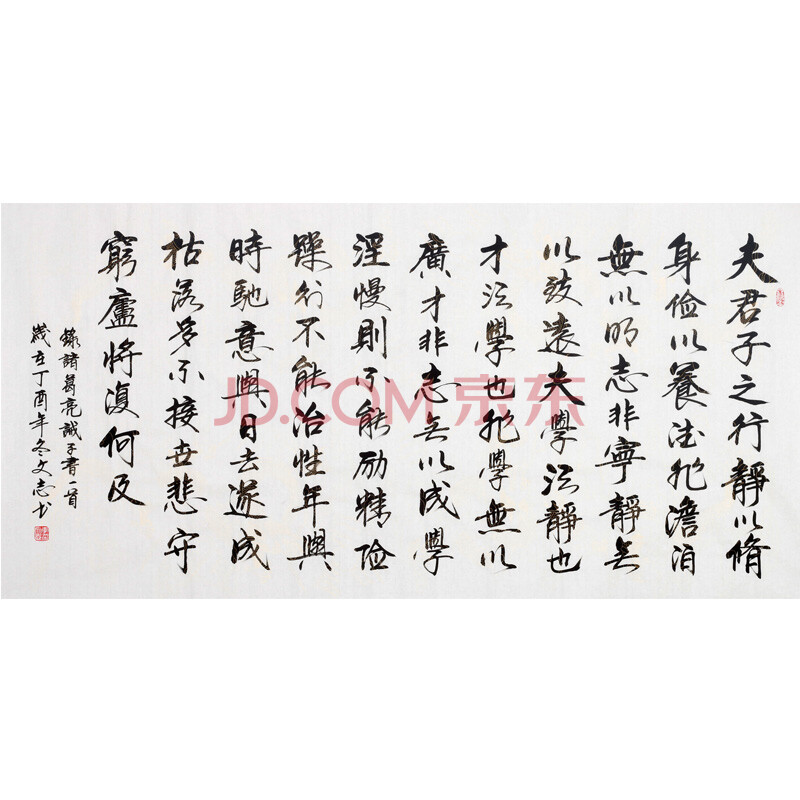 夫君子之行靜以脩
身儉以養德非澹泊
無以明志非寧靜無
以致遠夫學須靜也
才須學也非學無以
廣才非志無以成學
淫慢則不能励精險
躁則不能治性年與
時馳意與日去遂成
枯落多不接世悲守
窮廬將復何及
錄諸葛亮誡子書一首
歲在丁酉年冬文志書
JD.COM 京东